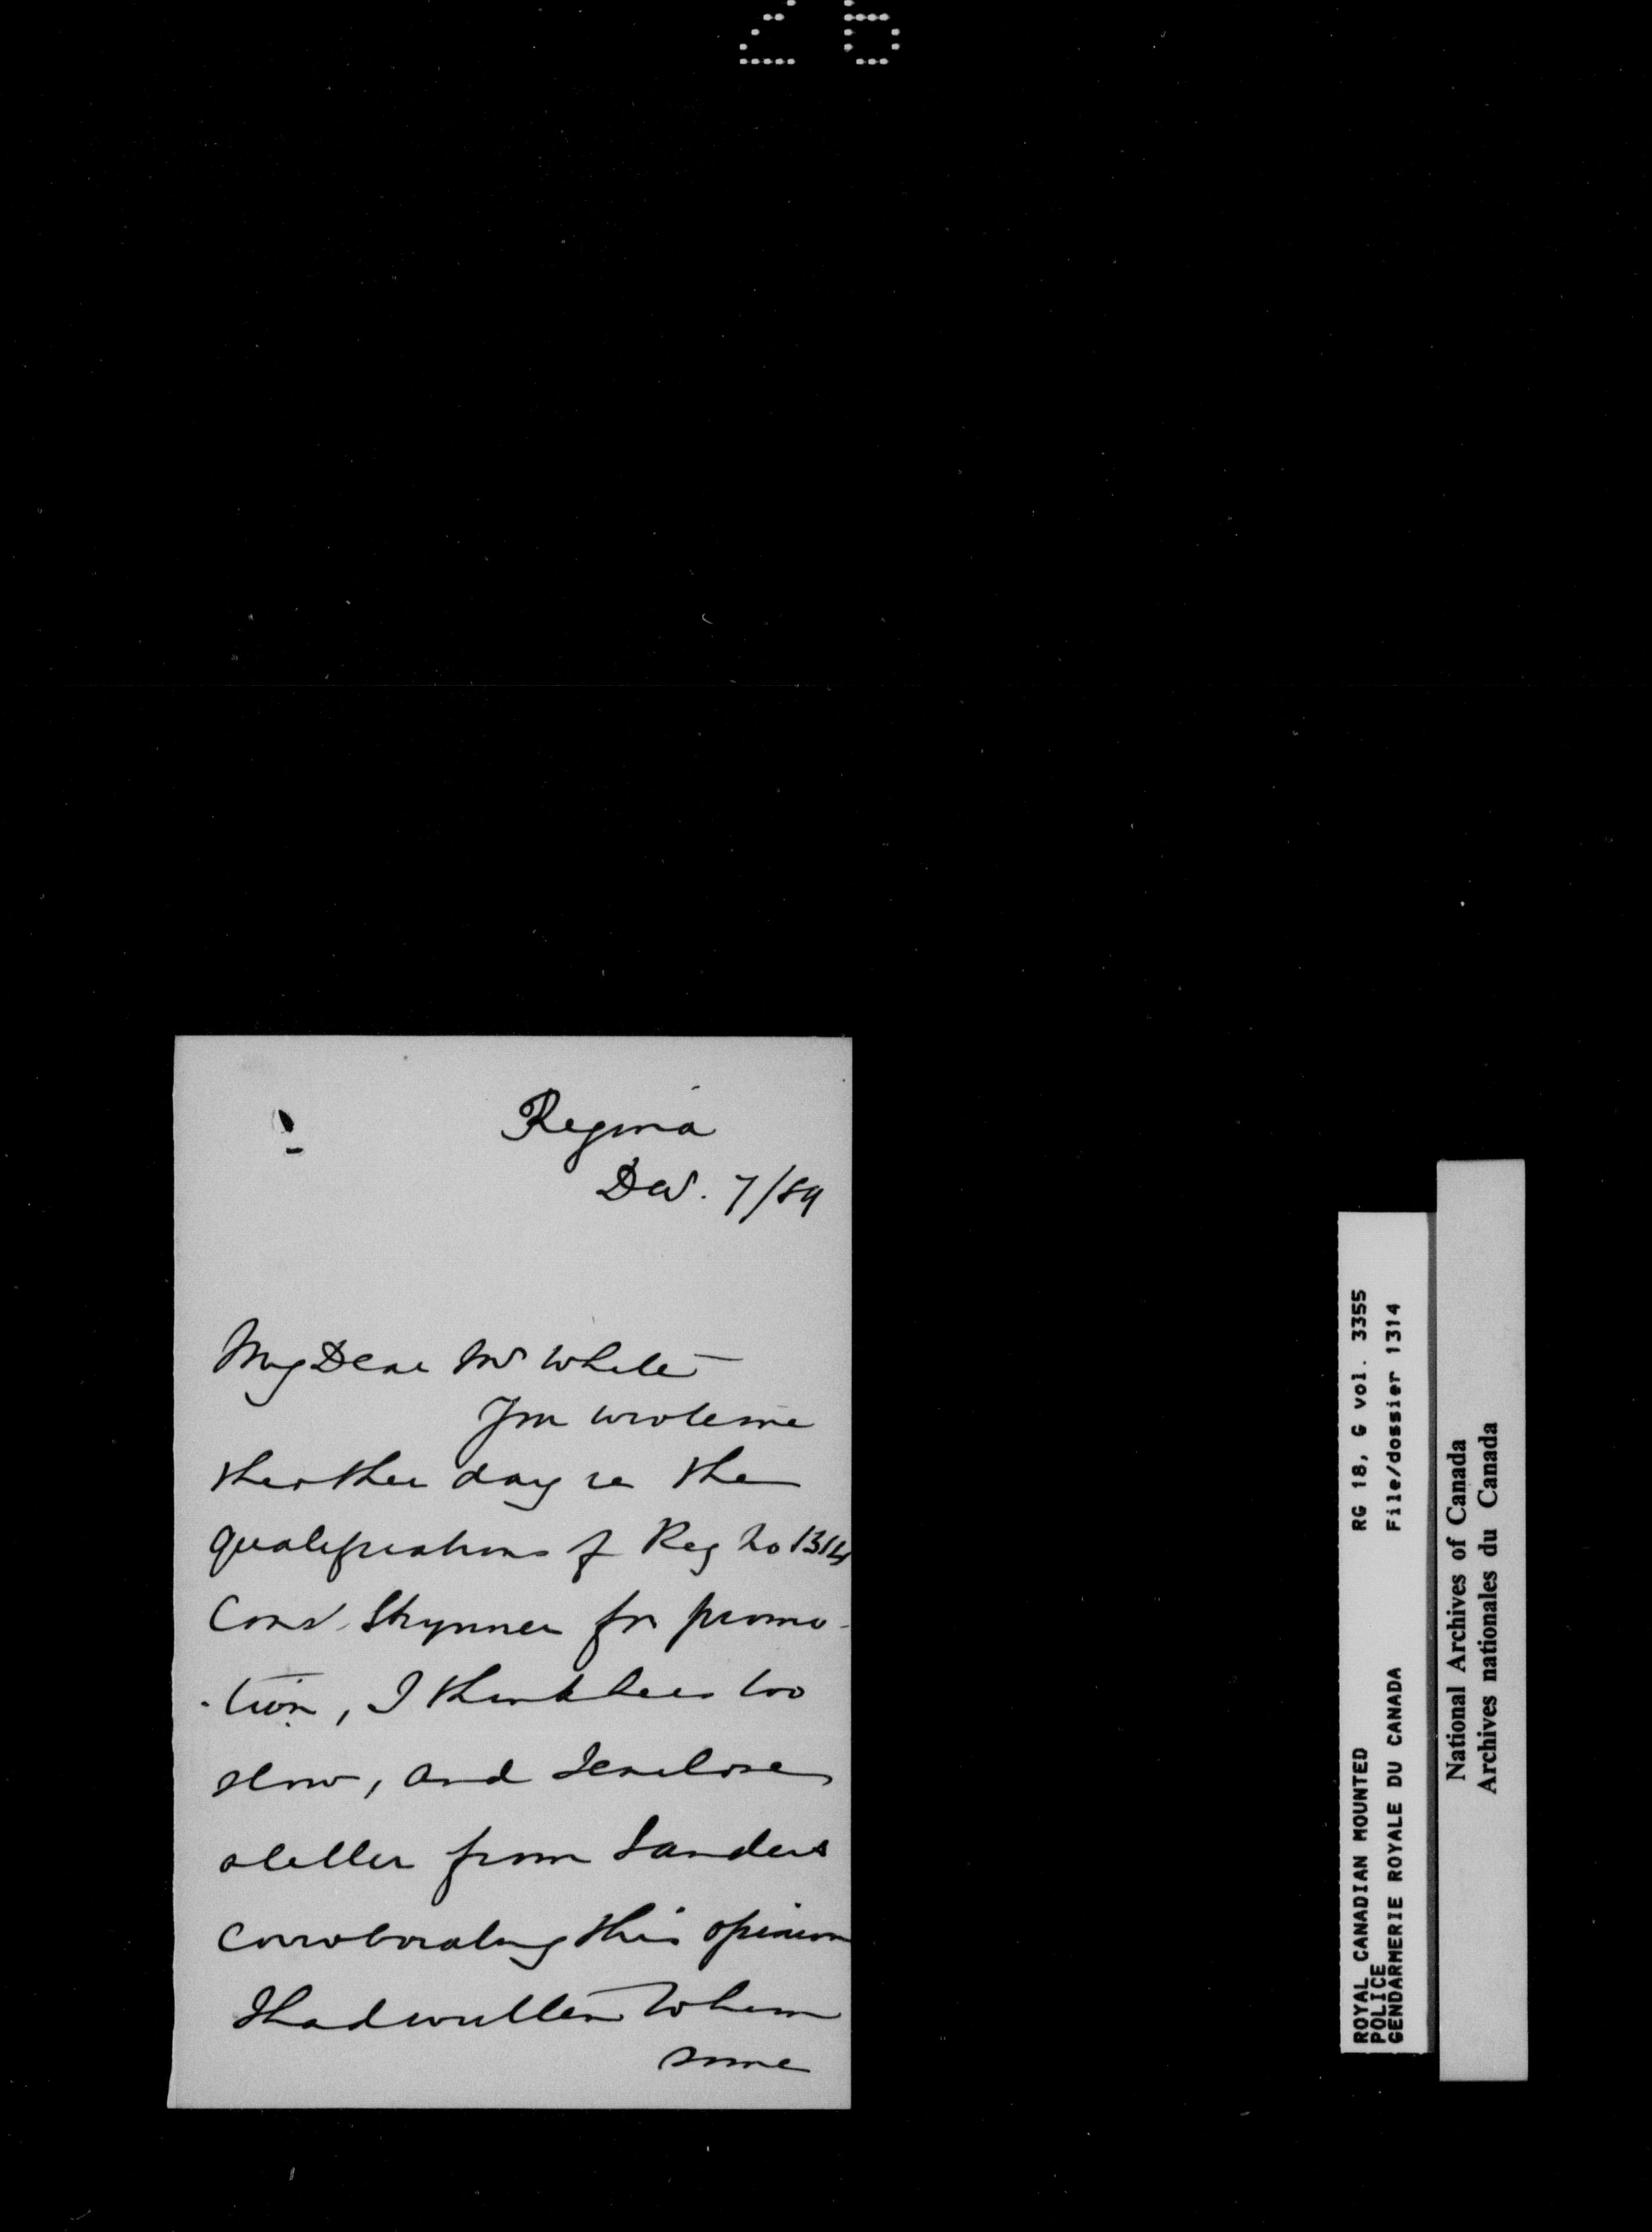 26
Regina
Dec. 7/89
My Dear Mr White
You wrote me
the other day re the
qualifications of Reg No 1314
Const. Skynner for promo-
-tion, I think he is too
slow, and I enclose
a letter from Sanders
corroborating this opinion
I had written to him
some
ROYAL CANADIAN MOUNTED POLICE
GENDARMERIE ROYALE DU CANADA
RG 18, G vol. 3355
File/dossier 1314
National Archives of Canada
Archives nationales du Canada